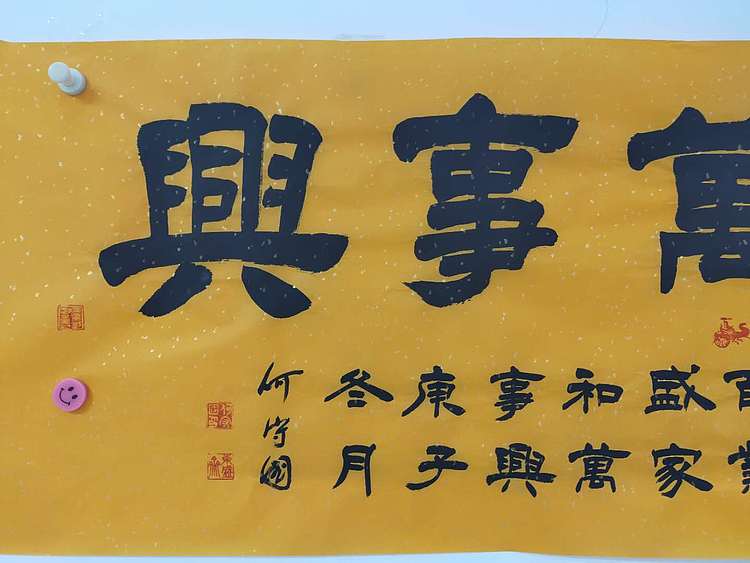 萬事興
百業
盛家
和萬
事興
庚子
冬月
何守國